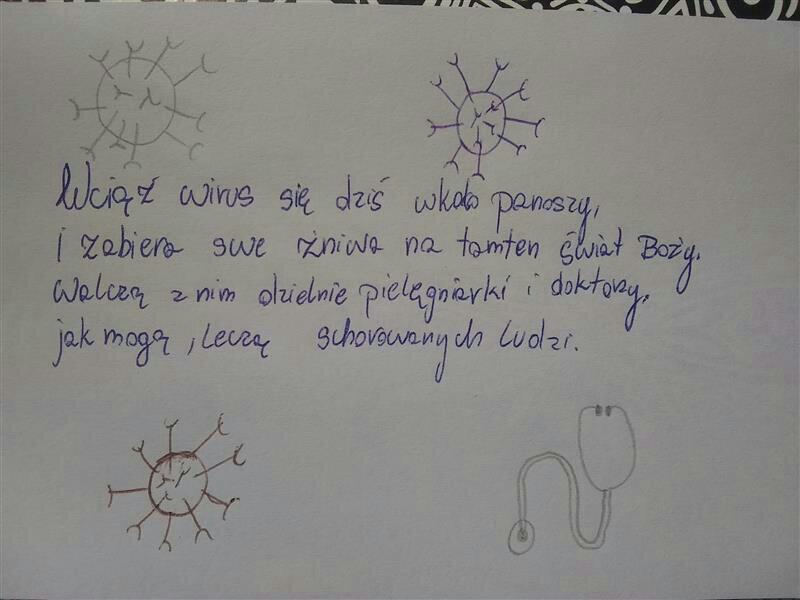 Wciąż wirus się dziś wkoło panoszy,
i zabiera swe żniwa na tamten świat Boży.
Walczą z nim dzielnie pielęgniarki i doktorzy,
jak mogą, leczą schorowanych ludzi.